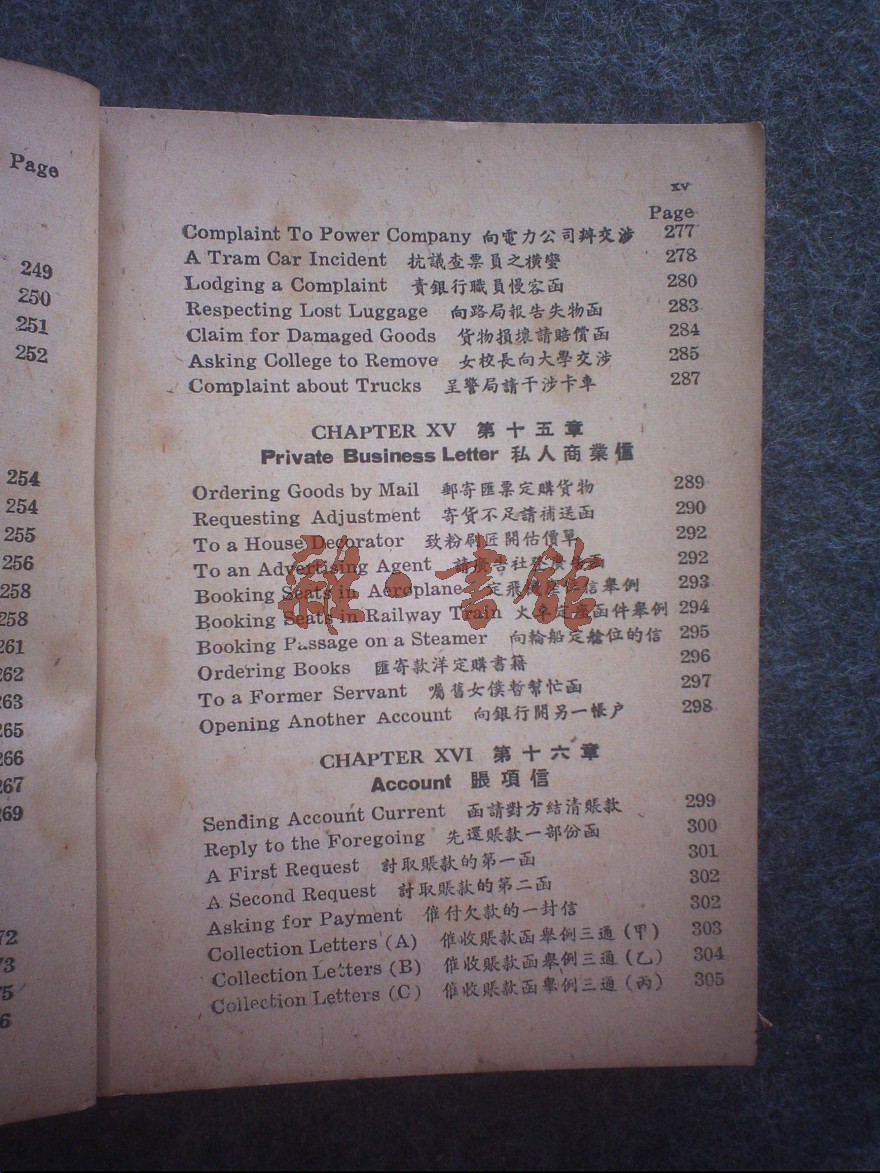 Page
249
250
251
252
254
254
255
256
258
258
261
262
263
265
266
267
269
72
73
75
6
xv
Page
Complaint To Power Company 向電力公司辦交涉 277
A Tram Car Incident 抗議查票員之橫蠻 278
Lodging a Complaint 責銀行職員慢客函 280
Respecting Lost Luggage 向路局報告失物函 283
Claim for Damaged Goods 貨物損壞請賠償函 284
Asking College to Remove 女校長向大學交涉 285
Complaint about Trucks 呈警局請干涉卡車 287
CHAPTER XV 第十五章
Private Business Letter 私人商業信
Ordering Goods by Mail 郵寄匯票定購貨物 289
Requesting Adjustment 寄貨不足請補送函 290
To a House Decorator 致粉刷匠開估價單 292
To an Advertising Agent 請廣告社登廣告函 292
Booking Seats in Aeroplane 定飛機座位信舉例 293
Booking Seats in Railway Train 火車定座函件舉例 294
Booking Passage on a Steamer 向輪船定艙位的信 295
Ordering Books 匯寄款洋定購書籍 296
To a Former Servant 囑舊女僕暫幫忙函 297
Opening Another Account 向銀行開另一帳户 298
CHAPTER XVI 第十六章
Account 賬項信
Sending Account Current 函請對方結清賬款 299
Reply to the Foregoing 先還賬款一部份函 300
A First Request 討取賬款的第一函 301
A Second Request 討取賬款的第二函 302
Asking for Payment 催付欠款的一封信 302
Collection Letters (A) 催收賬款函舉例三通(甲) 303
Collection Letters (B) 催收賬款函舉例三通(乙) 304
Collection Letters (C) 催收賬款函舉例三通(丙) 305
雜·書館